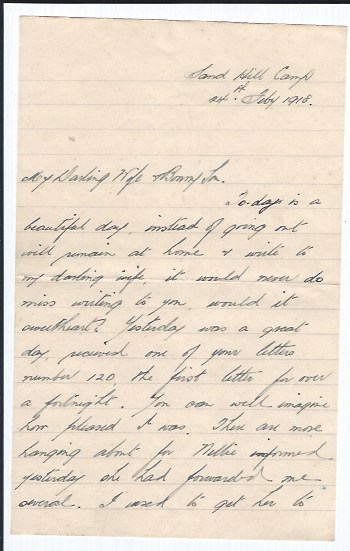 Sand Hill Camp
24th Feby 1918.
My Darling Wife & Bonny Son.
To-day is a
beautiful day, instead of going out
will remain at home & write to
my darling wife, it would never do
miss writing to you, would it
sweetheart? Yesterday was a great
day, received one of your letters
number 120, the first letter for over
a fortnight. You can well imagine
how pleased I was. There are more
hanging about for Nellie informed
yesterday she had forwarded me
several. I used to get her to